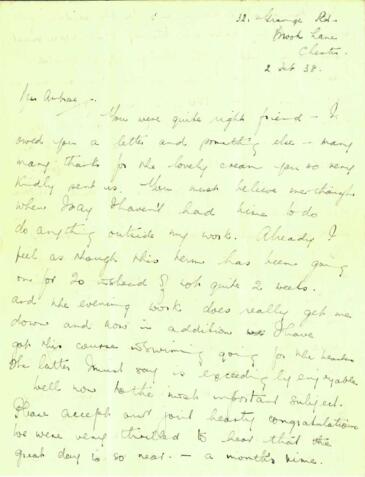 32. Grange Rd.
Brook Lane
Chester.
2 Feb 38.
My Aubrey.
You were quite right friend - I
owed you a letter and something else - many
many thanks for the lovely cream you so very
kindly sent us. You must believe me though
when I say I haven't had time to do
do anything outside my work. Already I
feel as though this term has been going
on for 20 instead of not quite 2 weeks.
and the evening work does really get me
down and now in addition I have
got this course swimming going for the
The latter I must say is exceedingly enjoyable.
Well now to the most important subject.
Please accept our joint hearty congratulations
We were very thrilled to hear that the
great day is so near. - a month's time.